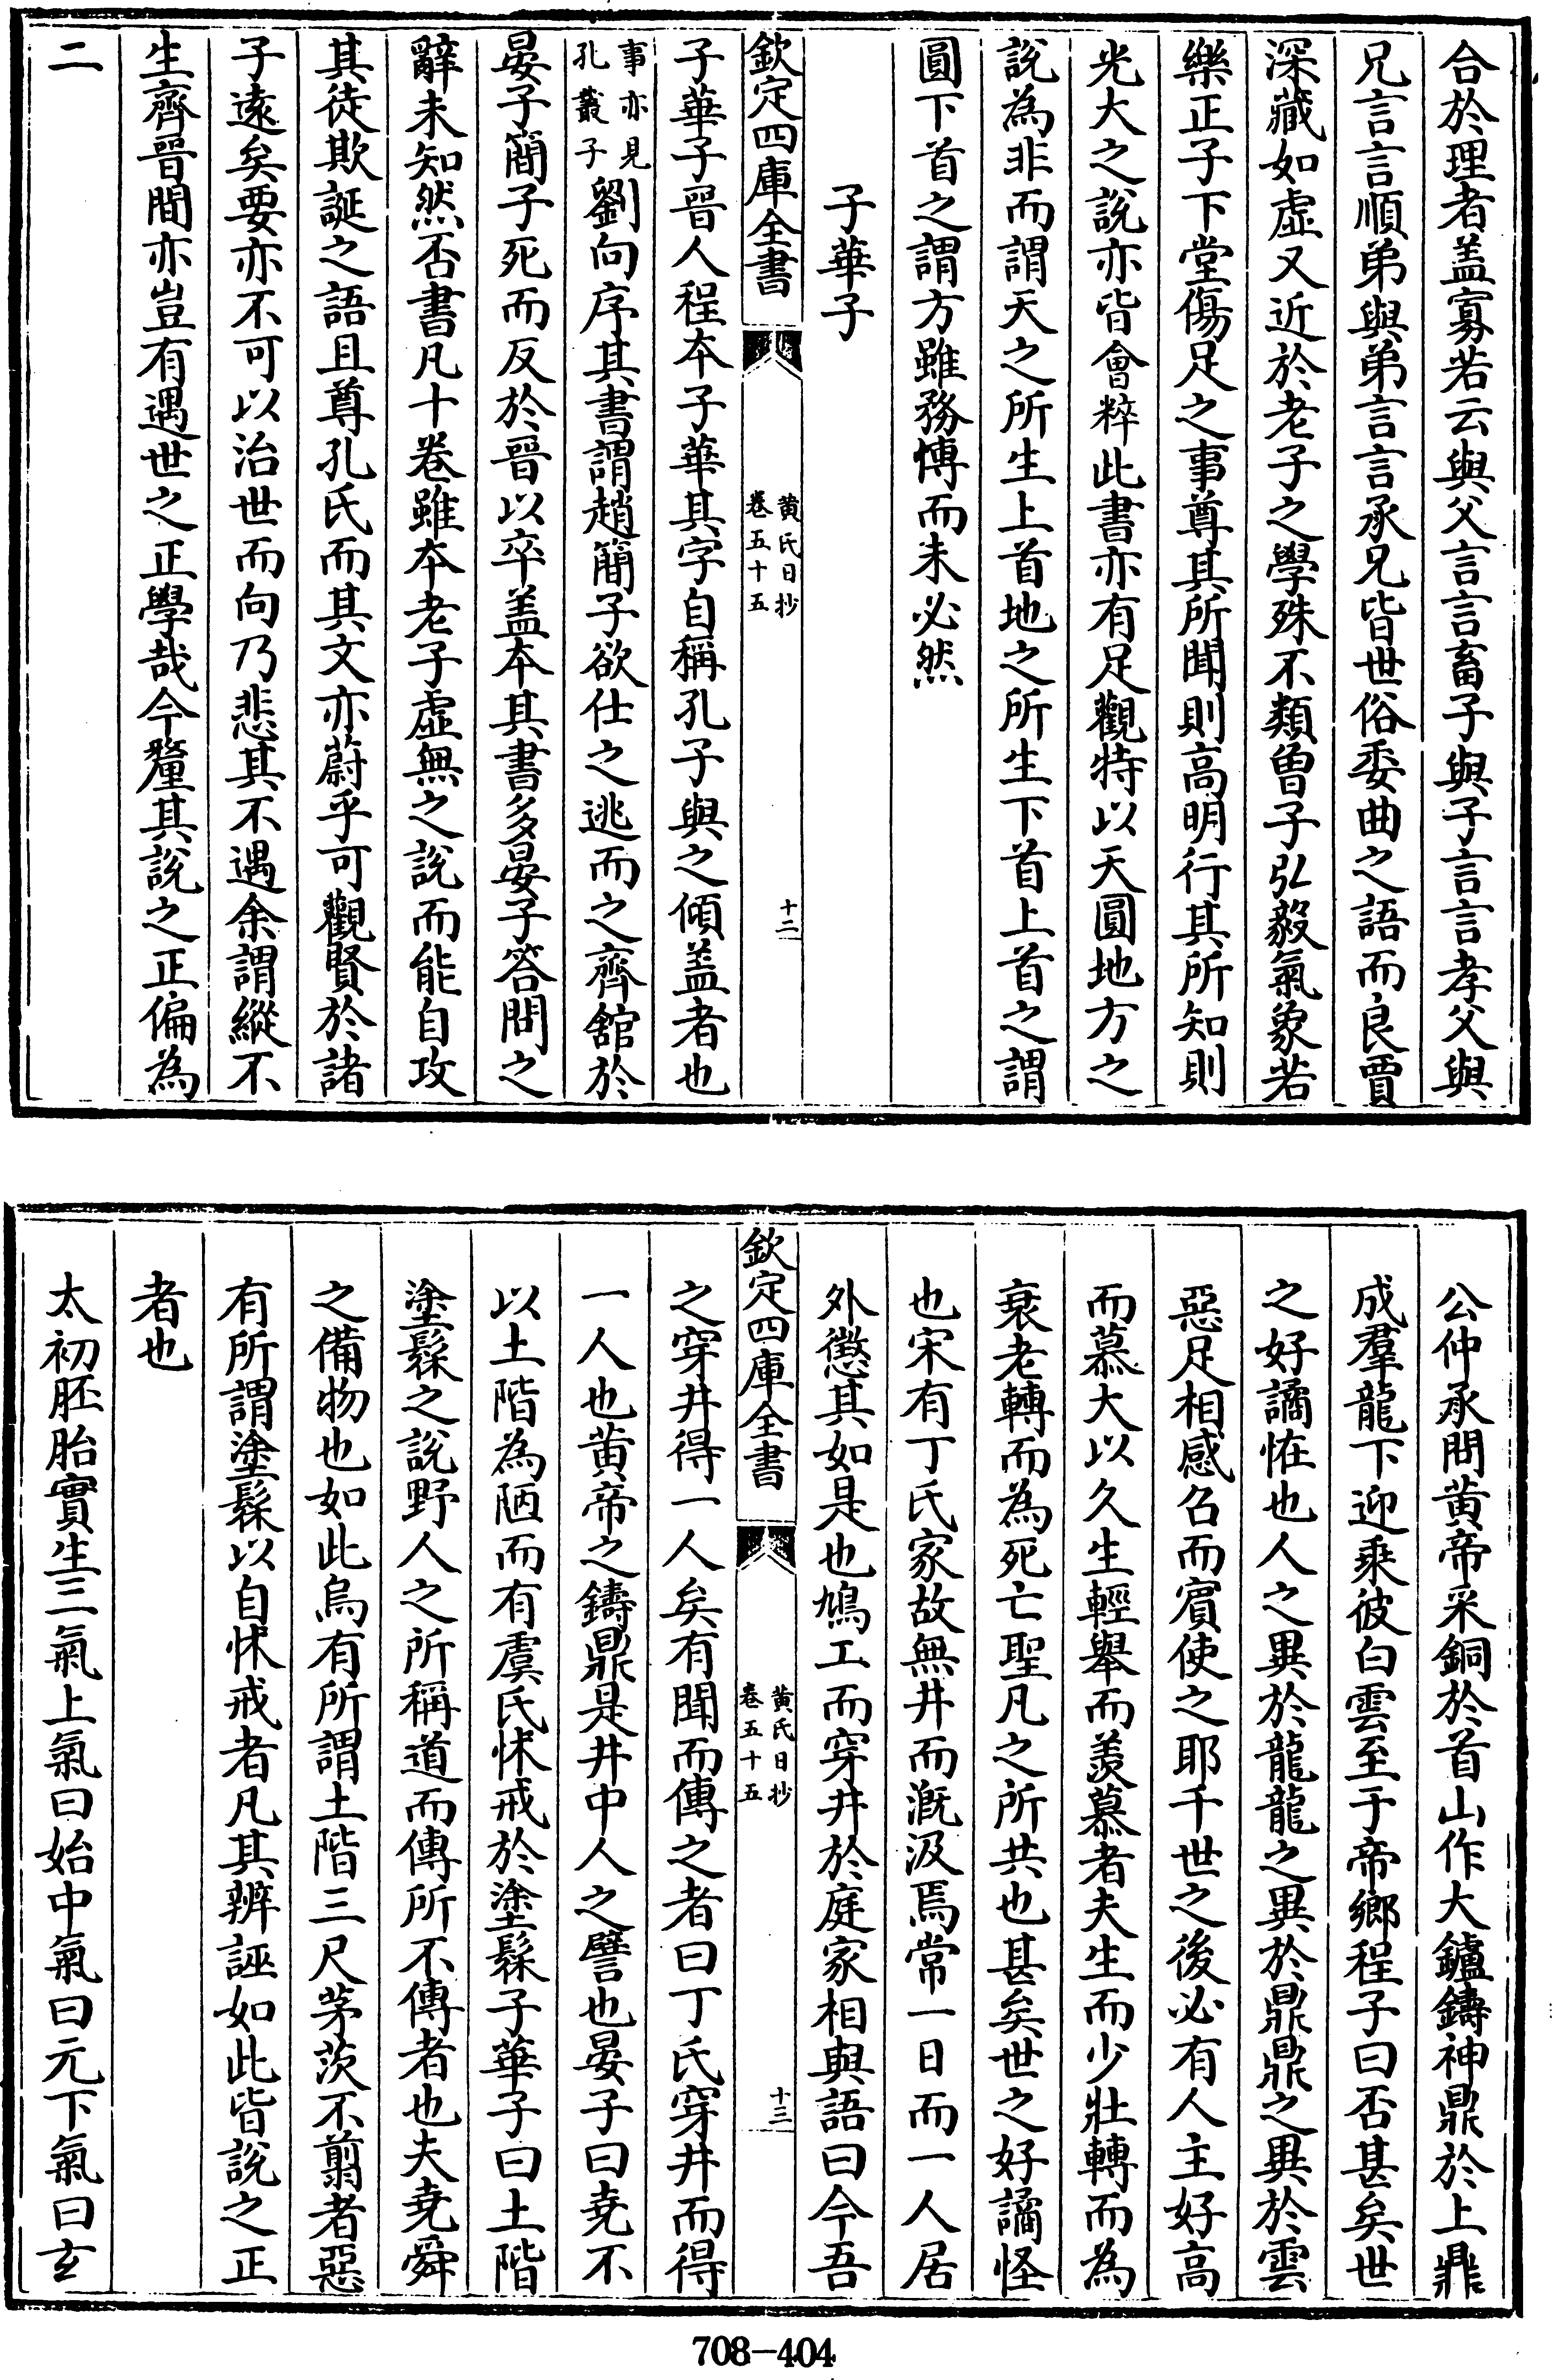 合於理者盖寡若云與父言言畜子與子言言孝父與
兄言言順弟與弟言言承兄皆世俗委曲之語而良賈
深藏如虚又近於老子之學殊不類曽子弘毅氣象若
樂正子下堂傷足之事尊其所聞則高明行其所知則
光大之說亦皆會粹此書亦有足觀特以天圓地方之
說為非而謂天之所生上首地之所生下首上首之謂
圓下首之謂方雖務愽而未必然
子華子
欽定四庫全書
黄氏日抄
卷五十五
十二
子華子晉人程本子華其字自稱孔子與之傾盖者也
事亦見
孔叢子
劉向序其書謂趙簡子欲仕之逃而之齊舘於
晏子簡子死而反於晉以卒盖本其書多晏子答問之
辭未知然否書凡十卷雖本老子虚無之說而能自攻
其徒欺誕之語且尊孔氏而其文亦蔚乎可觀賢於諸
子逺矣要亦不可以治世而向乃悲其不遇余謂縱不
生齊晉間亦豈有遇世之正學哉今釐其說之正偏為
二
公仲承問黄帝采銅於首山作大鑪鑄神鼎於上鼎
成羣龍下迎乘彼白雲至于帝鄉程子曰否甚矣世
之好譎恠也人之異於龍龍之異於鼎鼎之異於雲
惡足相感召而賓使之耶千世之後必有人主好高
而慕大以久生輕舉而羡慕者夫生而少壯轉而為
衰老轉而為死亡聖凡之所共也甚矣世之好譎怪
也宋有丁氏家故無井而溉汲焉常一日而一人居
外懲其如是也鳩工而穿井於庭家相與語曰今吾
欽定四庫全書
黄氏日抄
卷五十五
十三
之穿井得一人矣有聞而傳之者曰丁氏穿井而得
一人也黄帝之鑄鼎是井中人之譬也晏子曰堯不
以土階為陋而有虞氏怵戒於塗髹子華子曰土階
塗髹之說野人之所稱道而傳所不傳者也夫堯舜
之備物也如此烏有所謂土階三尺茅茨不翦者惡
有所謂塗髹以自怵戒者凡其辨誣如此皆說之正
者也
太初胚胎實生三氣上氣曰始中氣曰元下氣曰玄
708-404